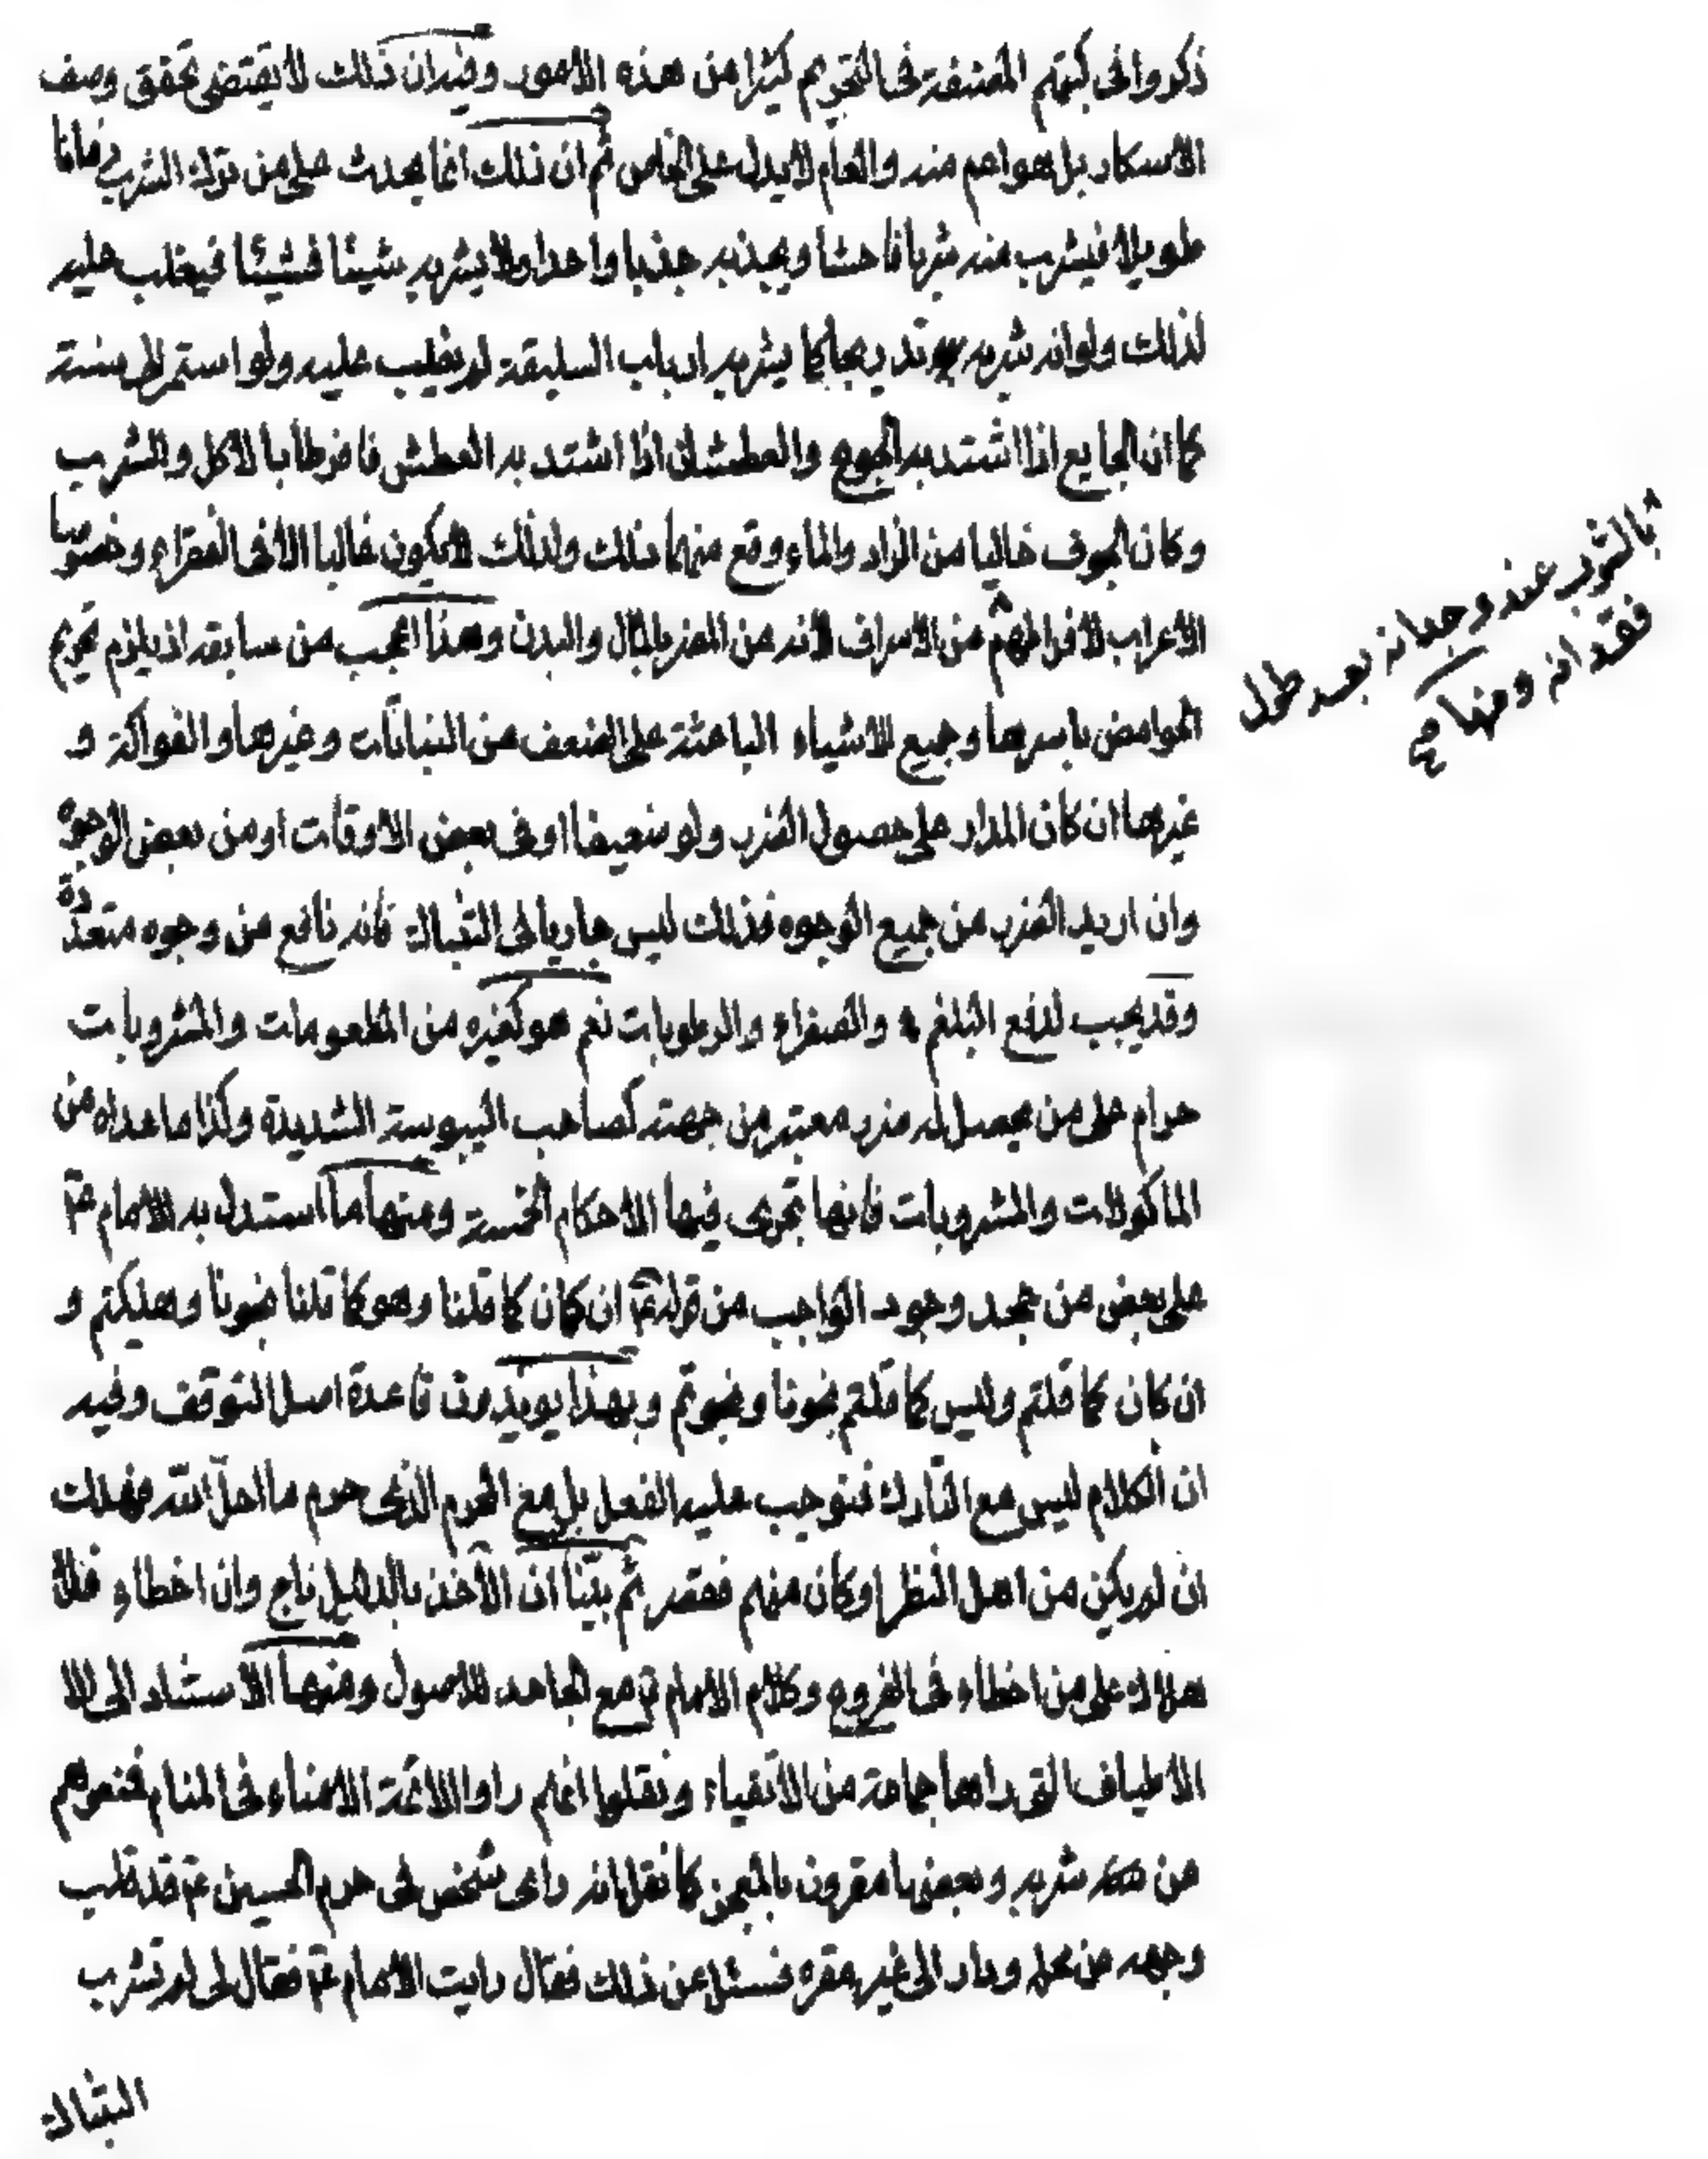 ذكروا فى كتبهم المصنفة فى التحريم كثيرا من هذه الامور وفيه ان ذلك لا يقتضى تحقق وصف
الاسكار بل هو اعم منه والعام لا يدل على الخاص ثم ان ذلك انما يحدث على من ترك الشرب زمانا
طويلا فيشرب منه شربا فاحشا ويجذبه جذبا واحدا ولا يشربه شيئا فشيئا فيغلب عليه
لذلك ولو انه شربه تدريجا كما يشربه ارباب السليقة لم يغلب عليه ولو استمر الى سنة
كما ان الجايع اذا اشتد به الجوع والعطشان اذا اشتد به العطش فافرطا بالاكل والشرب
وكان الجوف خاليا من الزاد والماء وقع منهما ذلك ولذلك لا يكون غالبا الا فى الفقراء وخصوصا
الاعراب لافراطهم من الاسراف لانه من المضر بالمال والبدن وهذا اعجب من سابقه اذ يلزم تحريم
بالشرب عند وجدانه بعد طول
فقدانه ومنها صح
الحوامض باسرها وجميع الاشياء الباعثة على الضعف من النباتات وغيرها والفواكه و
غيرها ان كان المدار على حصول الضرر ولو ضعيفا او فى بعض الاوقات او من بعض الوجوه
وان اريد الضرر من جميع الوجوه فذلك ليس جاريا فى التنباك فانه نافع من وجوه متعددة
وقد يجب لدفع البلغم والصفراء والرطوبات نعم هو كغيره من المطعومات والمشروبات
حرام على من يحصل له ضرر معتبر من جهته كصاحب اليبوسة الشديدة وكذا ما عداه من
الماكولات والمشروبات فانها تجرى فيها الاحكام الخمسة ومنها ما استدل به الامام ع
على بعض من جحد وجود الواجب من قوله ع ان كان كما قلنا وهو كما قلنا نجونا وهلكتم و
ان كان كما قلتم وليس كما قلتم نجونا ونجوتم وبهذا يويدون قاعدة اصل التوقف وفيه
ان الكلام ليس مع التارك فنوجب عليه الفعل بل مع المحرم الذى حرم ما احل الله فهلك
ان لم يكن من اهل النظر او كان منهم فقصر ثم بيّنا ان الآخذ بالدليل ناج وان اخطاء فلا
هلاك على من اخطاء فى الفروع وكلام الامام ع مع الجاحد للاصول ومنها الاستناد الى الا
الاطياف التى راها جماعة من الاتقياء ونقلوا انهم راوا الائمة الامناء فى المنام فمنعوهم
من شربه وبعضها مقرون بالمعجز كما نقل انه راى شخص فى حرم الحسين ع قد قلب
وجهه من محله ودار الى غير مقره فسئل عن ذلك فقال رايت الامام ع فقال لى لم تشرب
التنباك